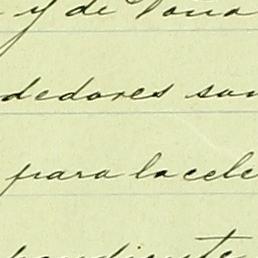 y de Doña
dedores san
para la cele
pendiente